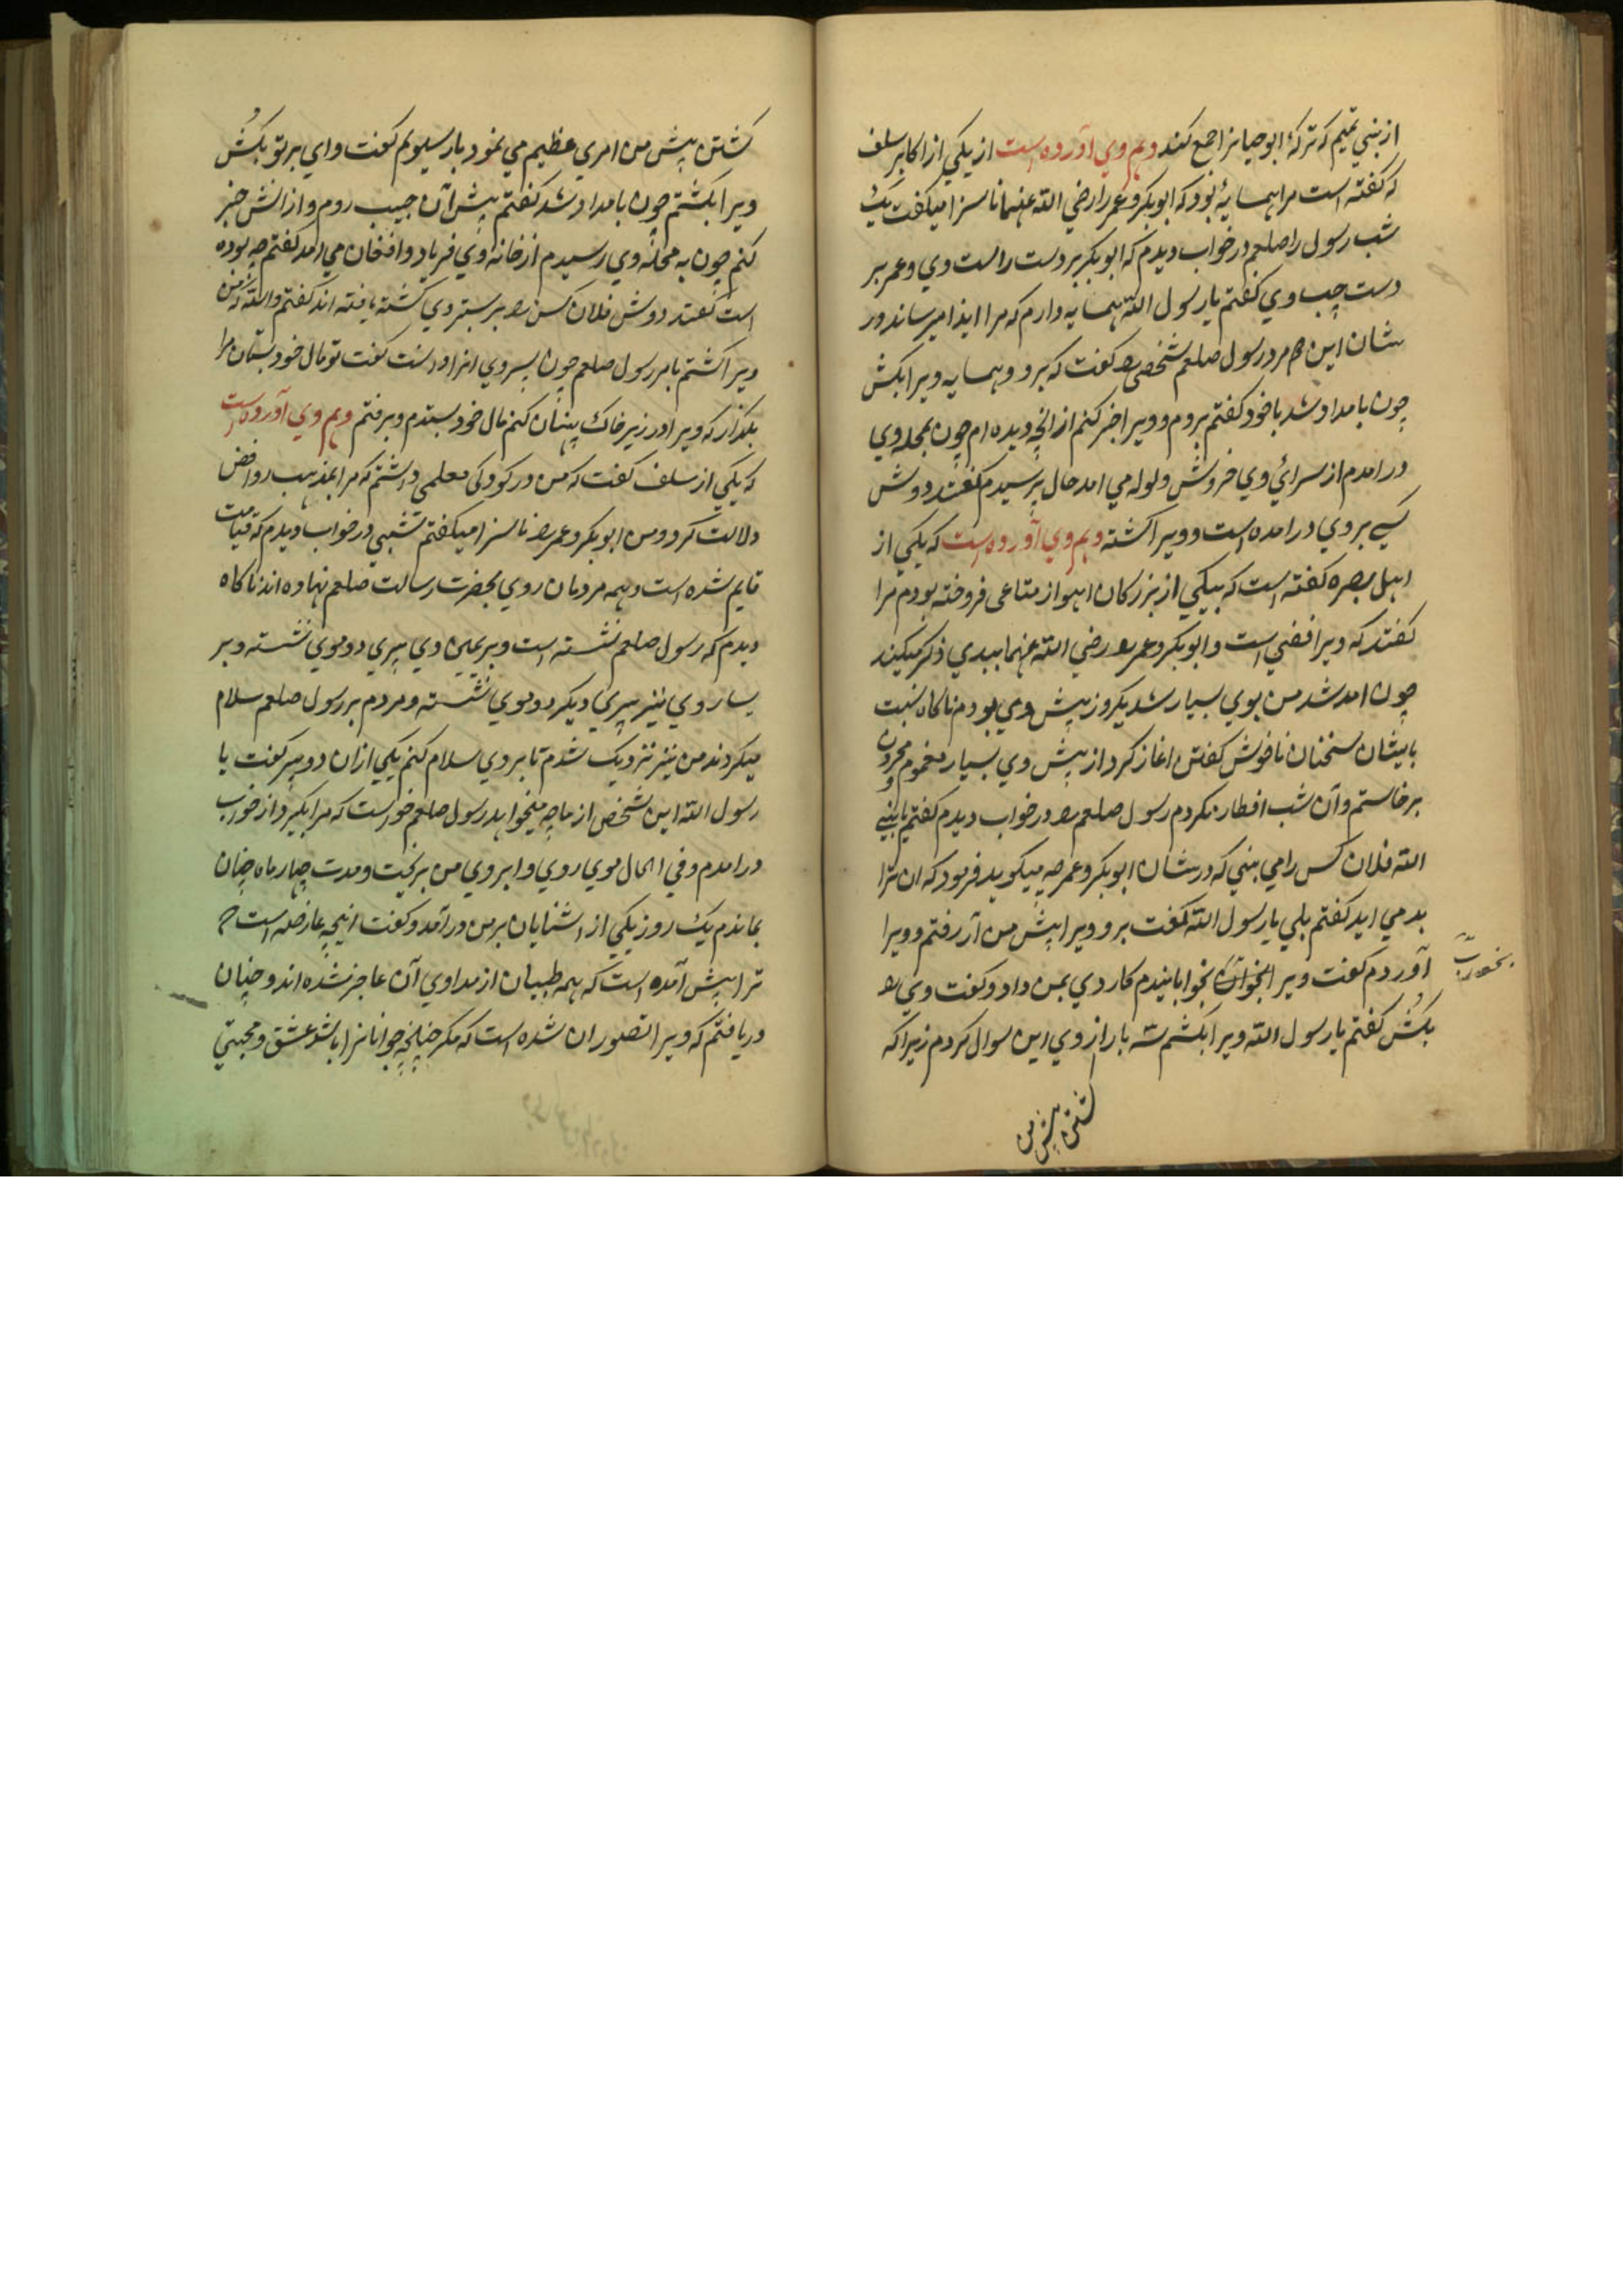 از بنی تمیم که ترکهٔ ابو حیانرا جمع کنند و هم وی آورده است از یکی از اکابر سلف
که کفته است مرا همسایهٔ بود که ابوبکر و عمر را رضی الله عنهما ناسزا میکفت یک
شب رسول را صلعم در خواب دیدم که ابوبکر بر دست راست وی و عمر بر
دست چپ وی کفتم یا رسول الله همسایه دارم که مرا ایذا میرساند در
شان این مرد رسول صلعم شخصی را کفت که برو و همسایه ویرا بکش
چون بامداد شد با خود کفتم بروم و ویرا خبر کنم از انچه دیده ام چون بمحله وی
در امدم از سرائ وی خروش و ولوله می امد حال پرسیدم کفتند دوش
کسی بر وی در امده است و ویرا کشته و هم وی آورده است که یکی از
اهل بصره کفته است که بیکی از بزرکان اهواز متاعی فروخته بودم مرا
کفتند که ویرا فضی است و ابوبکر و عمر را رضی الله عنهما ببدی ذکر میکند
چون امد شد من بوی بسیار شد یکروز پیش وی بودم ناکاه نسبت
بایشان سخنان ناخوش کفتن اغاز کرد از پیش وی بسیار مغموم و محزون
برخاستم و آن شب افطار نکردم رسول صلعم را در خواب دیدم کفتم یا نبی
الله فلان کس را می بینی که در شان ابوبکر و عمر چه میکوید فرمود که ان ترا
بد می اید کفتم بلی یا رسول الله کفت برو ویرا پیش من آر رفتم و ویرا
آوردم کفت ویرا بخوابان بخوابانیدم کاردی بمن داد و کفت وی را
بکش کفتم یا رسول الله ویرا بکشم سه بار از وی این سوال کردم زیرا که
کشتن پیش من
کشتن پیش من امری عظیم می نمود بار سیوم کفت وای بر تو بکش
ویرا بکشتم چون بامداد شد کفتم پیش آن حبیب روم و از انش خبر
کنم چون به محلهٔ وی رسیدم از خانه وی فریاد و افغان می امد کفتم چه بوده
است کفتند دوش فلان کس را بر بستر وی کشته یافته اند کفتم والله که من
ویرا کشتم بامر رسول صلعم چون پسر وی انرا دانست کفت تو مال خود بستان مرا
بکذار که ویرا در زیر خاک پنهان کنم مال خود بستدم و برفتم و هم وی آورده است
که یکی از سلف کفت که من در کودکی معلمی داشتم که مرا بمذهب روافض
دلالت کرد و من ابوبکر و عمر را ناسزا میکفتم شبی در خواب دیدم که قیامت
قایم شده است و همه مردمان روی بحضرت رسالت صلعم نهاده اند ناکاه
دیدم که رسول صلعم نشسته است و بر یمین وی پیری دو موی نشسته و بر
یسار وی نیز پیری دیکر دو موی نشسته و مردم بر رسول صلعم سلام
میکردند من نیز نزدیک شدم تا بر وی سلام کنم یکی ازان دو پیر کفت یا
رسول الله این شخص از ما چه میخواهد رسول صلعم خواست که مرا بکیرد از خواب
در امدم و فی الحال موی روی و ابروی من بریخت و مدت چهار ماه چنان
بماندم یک روز یکی از اشنایان بر من در آمد و کفت اینچه عارضه است که
ترا پیش آمده است که همه طبیبان از مداوی آن عاجز شده اند و چنان
دریافتم که ویرا تصور ان شده است که مکر چنانچه جوانانرا باشد عشق و محبتی